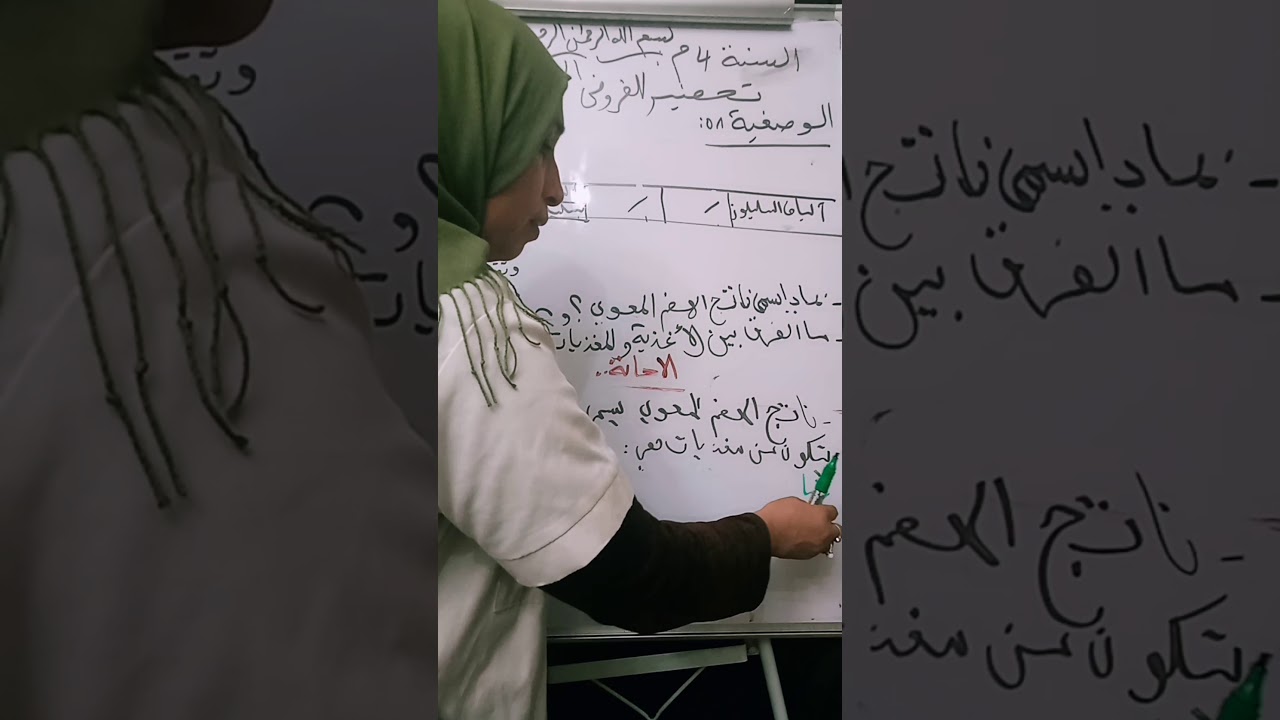 بسم الله الرحمن الر
السنة 4 م
تحضير الفروض ال
الوضعية 01:
ألياف السليلوز / /
وتق
- بماذا يسمى ناتج الهضم المعوي ؟ و
- ما الفرق بين الأغذية والمغذيات
الاجابة..
- ناتج الهضم المعوي يسمى
يتكون من مغذيات هي :